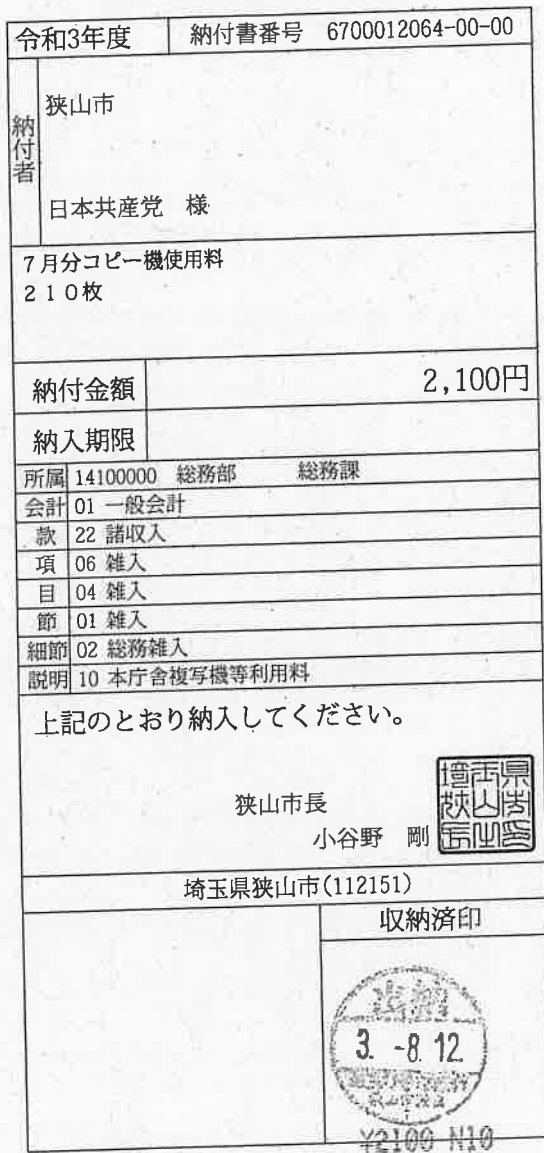 令和3年度 納付書番号 6700012064-00-00
納付者
狭山市
日本共産党 様
7月分コピー機使用料
210枚
納付金額 2,100円
納入期限
所属 14100000 総務部 総務課
会計 01 一般会計
款 22 諸収入
項 06 雑入
目 04 雑入
節 01 雑入
細節 02 総務雑入
説明 10 本庁舎複写機等利用料
上記のとおり納入してください。
狭山市長
小谷野 剛
埼玉県狭山市(112151)
収納済印
出納
3. -8. 12.
¥2100 N10